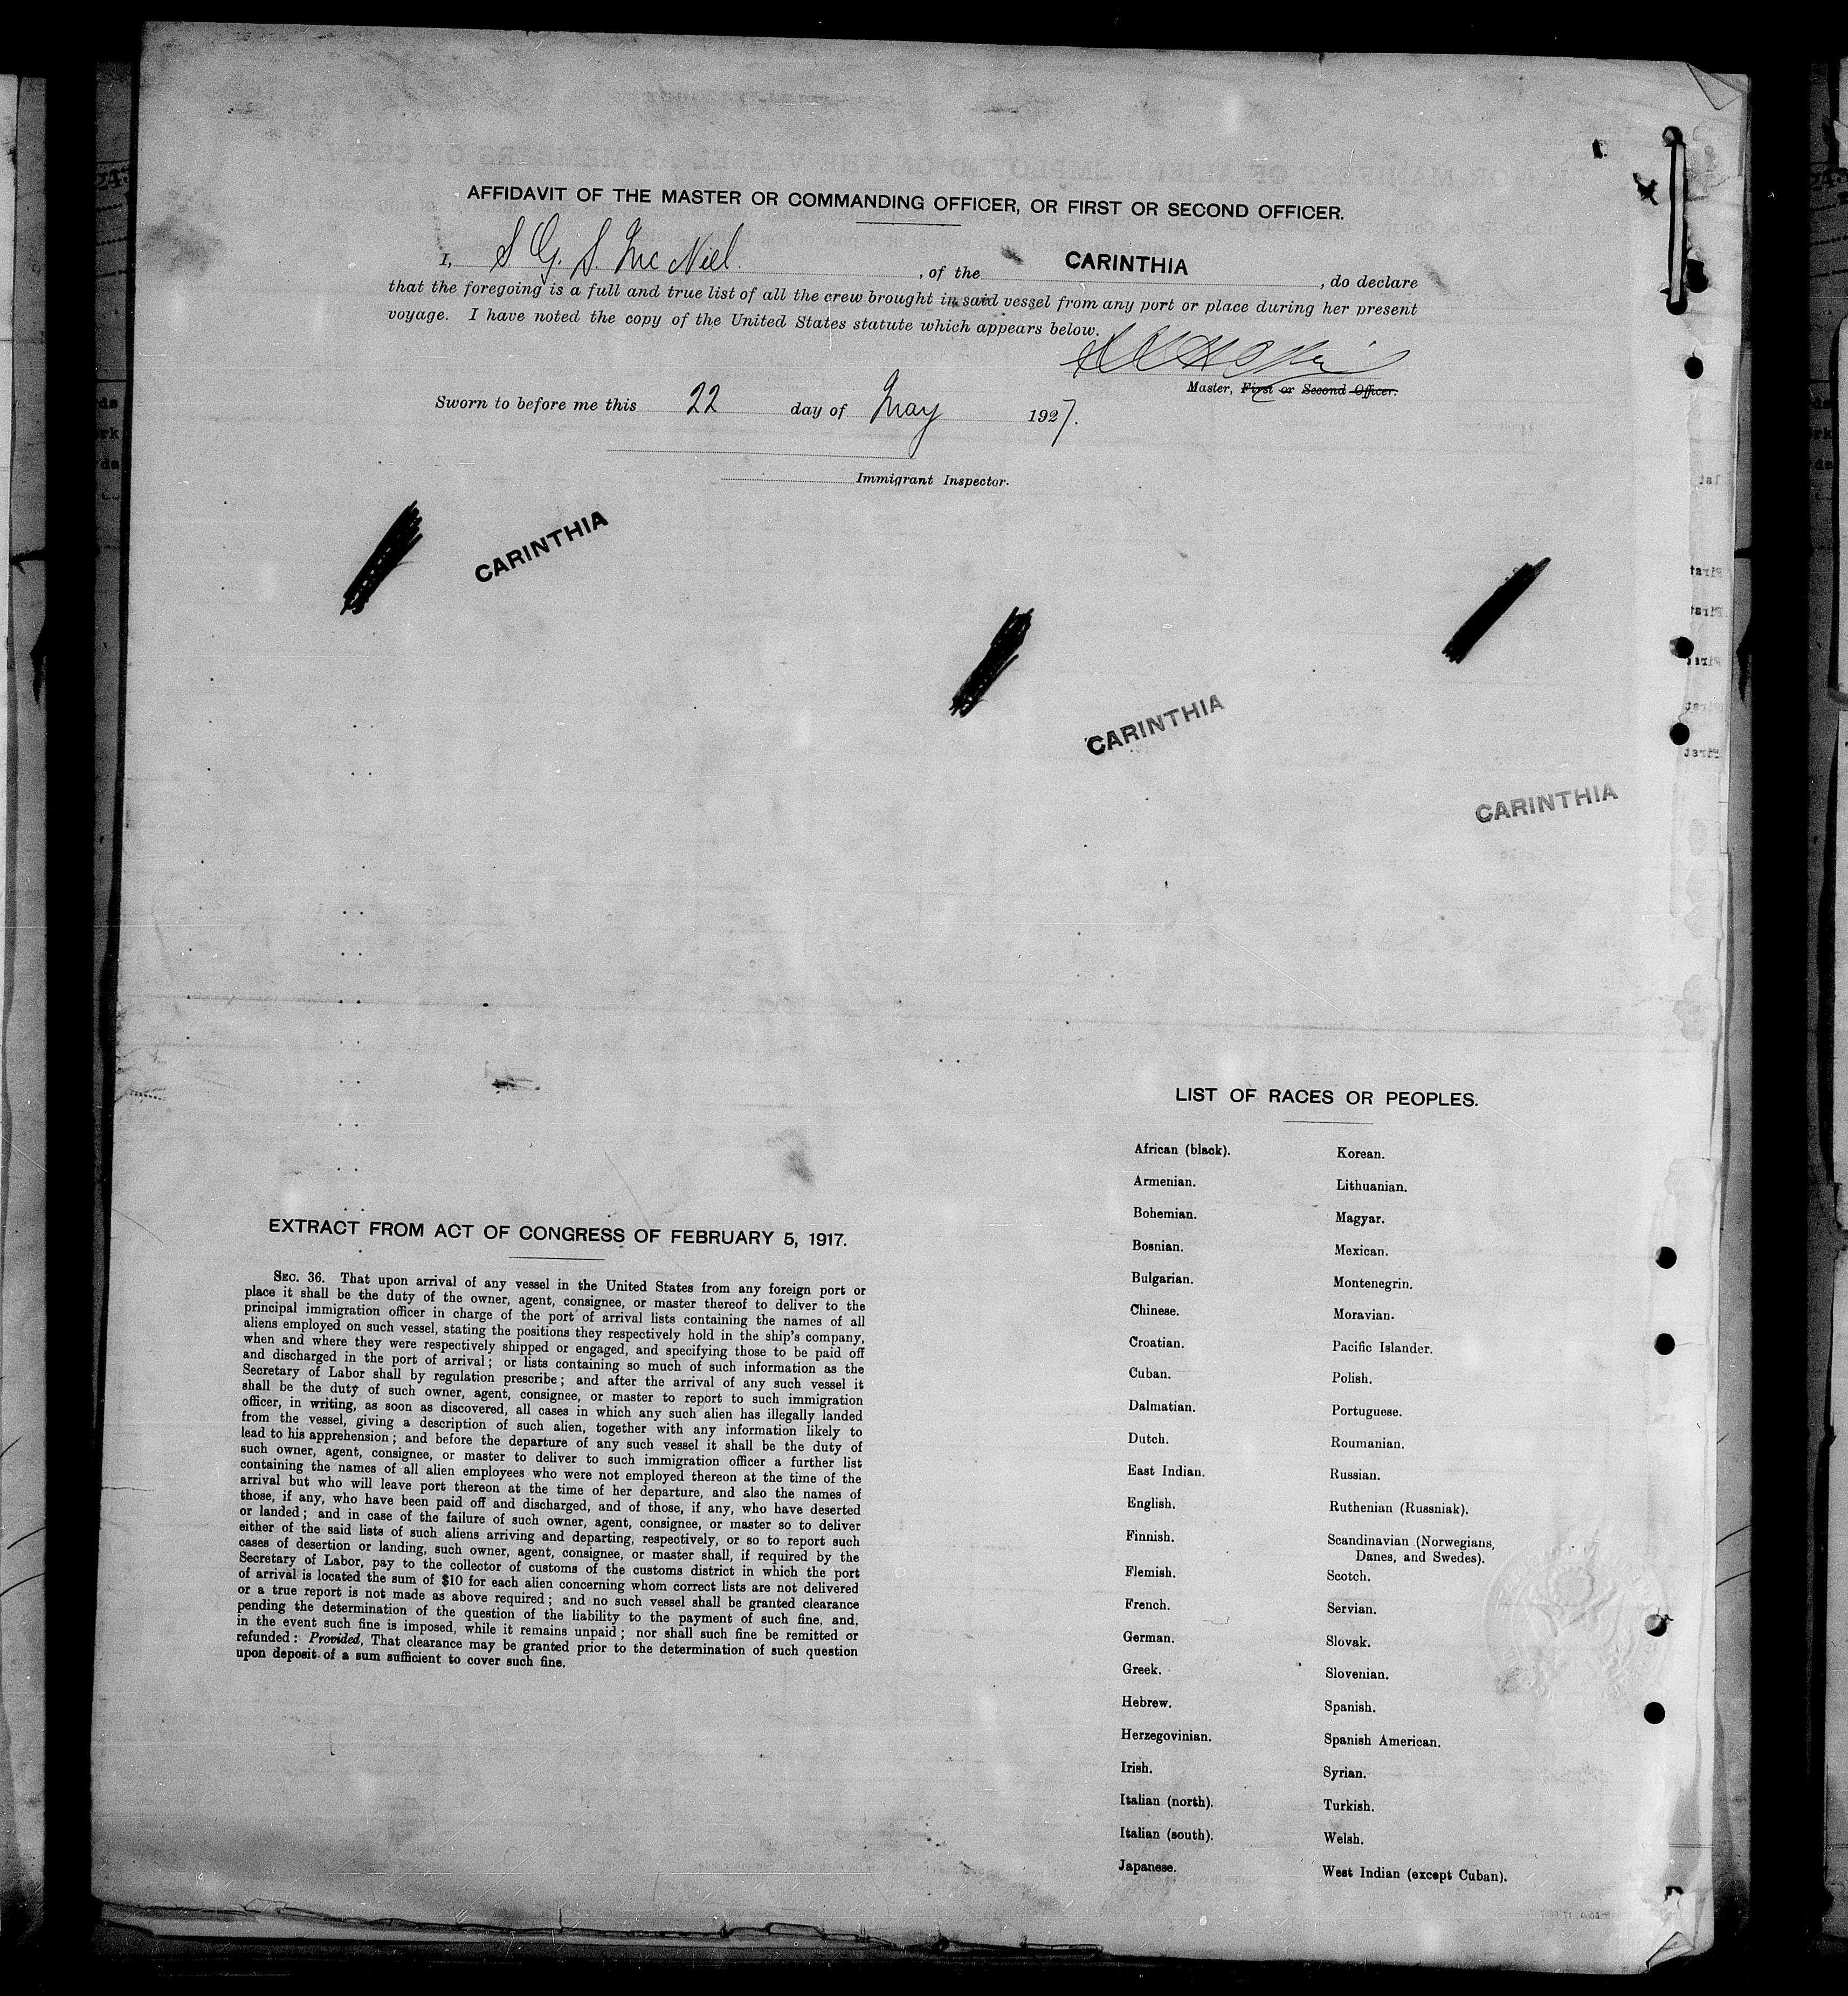 AFFIDAVIT OF THE MASTER OR COMMANDING OFFICER, OR FIRST OR SECOND OFFICER.
I, S G. S. Mc Niel. , of the CARINTHIA , do declare
that the foregoing is a full and true list of all the crew brought in said vessel from any port or place during her present
voyage. I have noted the copy of the United States statute which appears below.
Master, First or Second Officer.
Sworn to before me this 22 day of May 1927.
Immigrant Inspector.
CARINTHIA
CARINTHIA
CARINTHIA
EXTRACT FROM ACT OF CONGRESS OF FEBRUARY 5, 1917.
SEC. 36. That upon arrival of any vessel in the United States from any foreign port or
place it shall be the duty of the owner, agent, consignee, or master thereof to deliver to the
principal immigration officer in charge of the port of arrival lists containing the names of all
aliens employed on such vessel, stating the positions they respectively hold in the ship's company,
when and where they were respectively shipped or engaged, and specifying those to be paid off
and discharged in the port of arrival; or lists containing so much of such information as the
Secretary of Labor shall by regulation prescribe; and after the arrival of any such vessel it
shall be the duty of such owner, agent, consignee, or master to report to such immigration
officer, in writing, as soon as discovered, all cases in which any such alien has illegally landed
from the vessel, giving a description of such alien, together with any information likely to
lead to his apprehension; and before the departure of any such vessel it shall be the duty of
such owner, agent, consignee, or master to deliver to such immigration officer a further list
containing the names of all alien employees who were not employed thereon at the time of the
arrival but who will leave port thereon at the time of her departure, and also the names of
those, if any, who have been paid off and discharged, and of those, if any, who have deserted
or landed; and in case of the failure of such owner, agent, consignee, or master so to deliver
either of the said lists of such aliens arriving and departing, respectively, or so to report such
cases of desertion or landing, such owner, agent, consignee, or master shall, if required by the
Secretary of Labor, pay to the collector of customs of the customs district in which the port
of arrival is located the sum of $10 for each alien concerning whom correct lists are not delivered
or a true report is not made as above required; and no such vessel shall be granted clearance
pending the determination of the question of the liability to the payment of such fine, and,
in the event such fine is imposed, while it remains unpaid; nor shall such fine be remitted or
refunded: Provided, That clearance may be granted prior to the determination of such question
upon deposit of a sum sufficient to cover such fine.
LIST OF RACES OR PEOPLES.
African (black).
Armenian.
Bohemian.
Bosnian.
Bulgarian.
Chinese.
Croatian.
Cuban.
Dalmatian.
Dutch.
East Indian.
English.
Finnish.
Flemish.
French.
German.
Greek.
Hebrew.
Herzegovinian.
Irish.
Italian (north).
Italian (south).
Japanese.
Korean.
Lithuanian.
Magyar.
Mexican.
Montenegrin.
Moravian.
Pacific Islander.
Polish.
Portuguese.
Roumanian.
Russian.
Ruthenian (Russniak).
Scandinavian (Norwegians,
Danes, and Swedes).
Scotch.
Servian.
Slovak.
Slovenian.
Spanish.
Spanish American.
Syrian.
Turkish.
Welsh.
West Indian (except Cuban).